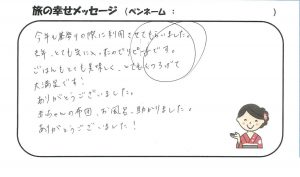 旅の幸せメッセージ (ペンネーム: )
今年も里帰りの際に利用させてもらいました。
去年、とても気に入ったのでリピートです。
ごはんもとても美味しく、とてもくつろげて
大満足です!
ありがとうございました。
赤ちゃんの布団、お風呂、助かりました。
ありがとうございました!